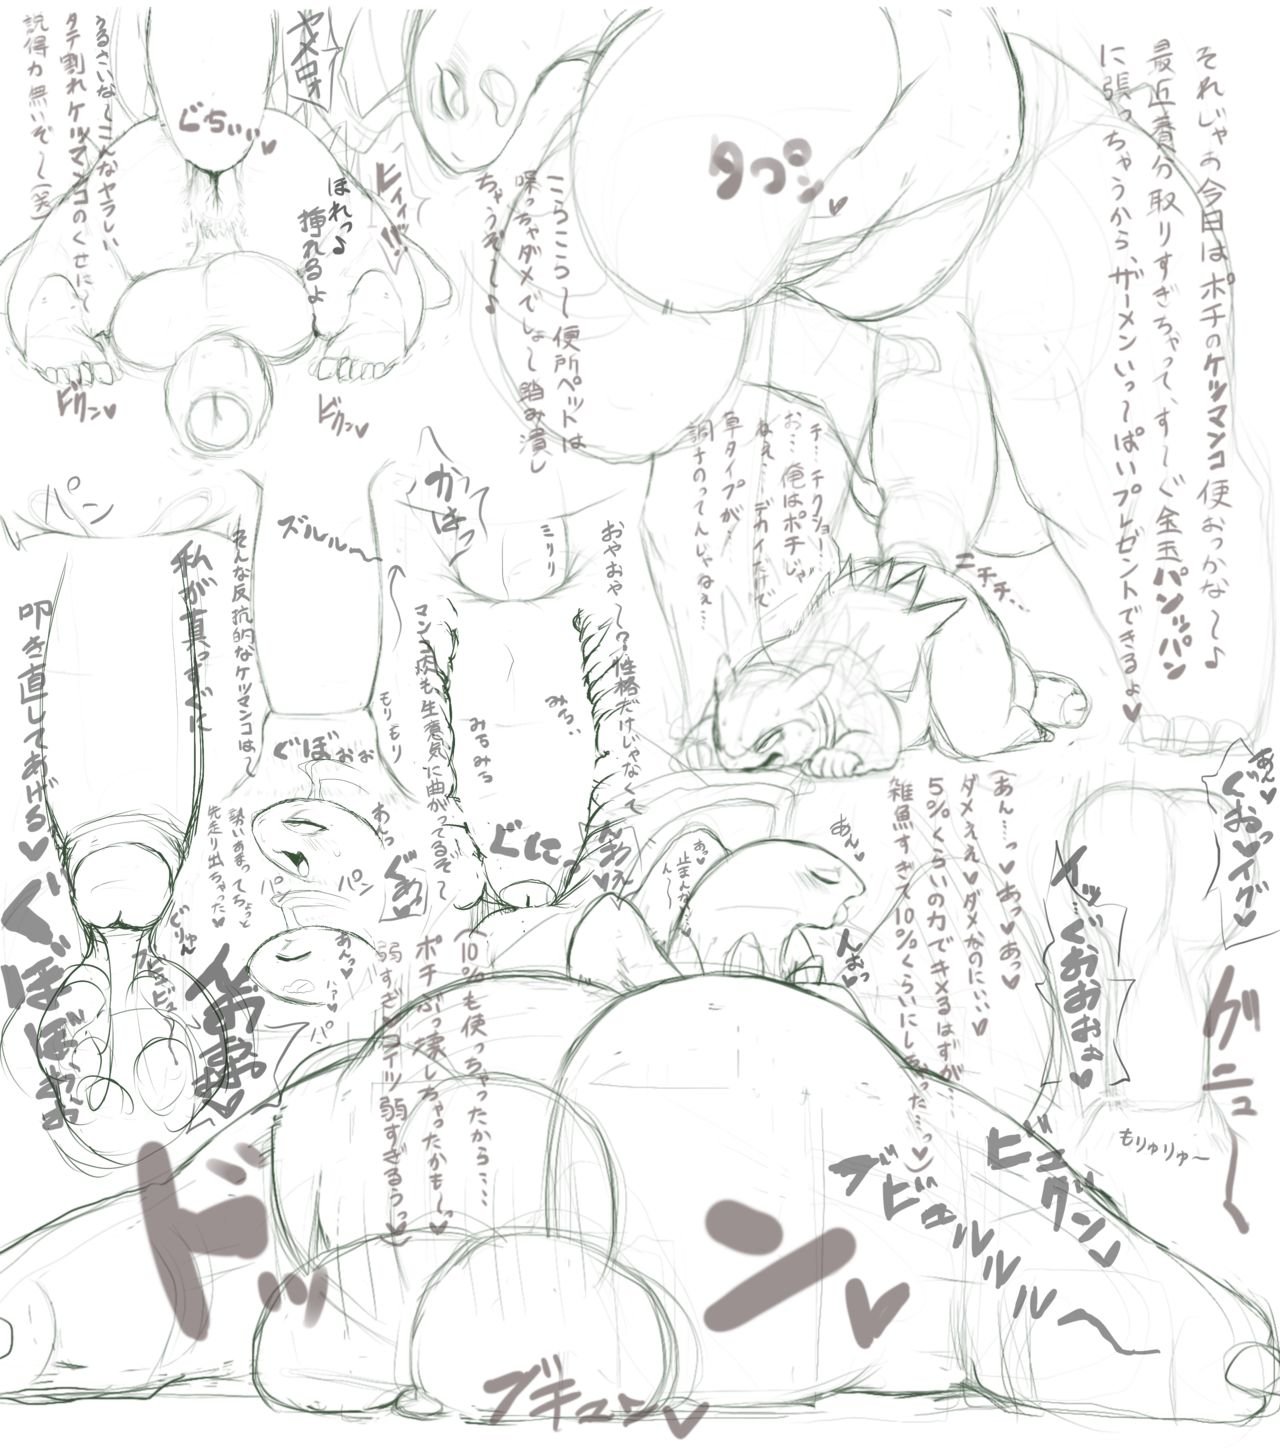 それじゃお今日はポチのケツマンコ便おっかな〜♪
最近養分取りすぎちゃって、す〜ぐ金玉パンッパン
に張っちゃうから、ザーメンいっ〜ぱいプレゼントできるよ♥
タプンッ♥
こらここら〜便所ペットは
喋っちゃダメでしょ〜踏み潰し
ちゃうぞ〜♪
チ…チクショー…
お…俺はポチじゃ
ねぇ…デカイだけで
草タイプが…
調子のってんじゃねぇ…
ニチチ…
ヤメロォ
うるさいな〜こんなヤラしい
タテ割れケツマンコのくせに〜
説得力無いぞ〜(笑)
じちぃぃ♥
ヒィィ!!!
ほれっ♪
挿れるよ
ビクン♥
ビクッ♥
おやおや〜?性格だけじゃなくて
マンコ肉も、生意気に曲がってるぞ〜
かはっ
ミリリ
みろ…
みろみろ
ぐにっ
んおぇぇ♥
ズルルー
そんな反抗的なケツマンコは〜
モリモリ
ぐぽぉぉ
パン
私が真っすぐに
叩き直してあげる♥
あんっ
パン
パ
勢いあまってちょっと
先走り出ちゃった♥
あんっ♥
ハァ♥
パ
ぐりゅん
ブビキビュ
ぐぼぼぉ
(あん…っ♥あっ♥あっ♥
ダメぇぇ♥ダメなのにぃぃ♥
5%くらいの力でキメるはずが…
雑魚すぎて10%くらいにしちゃった…っ♥)
あんっ♥
あっ♥
止まんな…
ん〜
んおっ
(10%も使っちゃったから…
ポチぶっ壊しちゃったかも〜っ♥
弱すぎ♥コイツ弱すぎるうっ♥)
あんっ♥
ぐおっ♥イグ♥
イッ…ぐおおおぉ♥
グニュ〜〜
もりゅりゅ〜
ビュグン♪
ブビュルルルル〜
ドッン♥
ブキュン♥